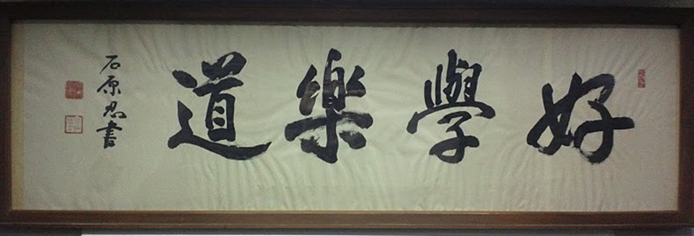 好學樂道
石原忍書